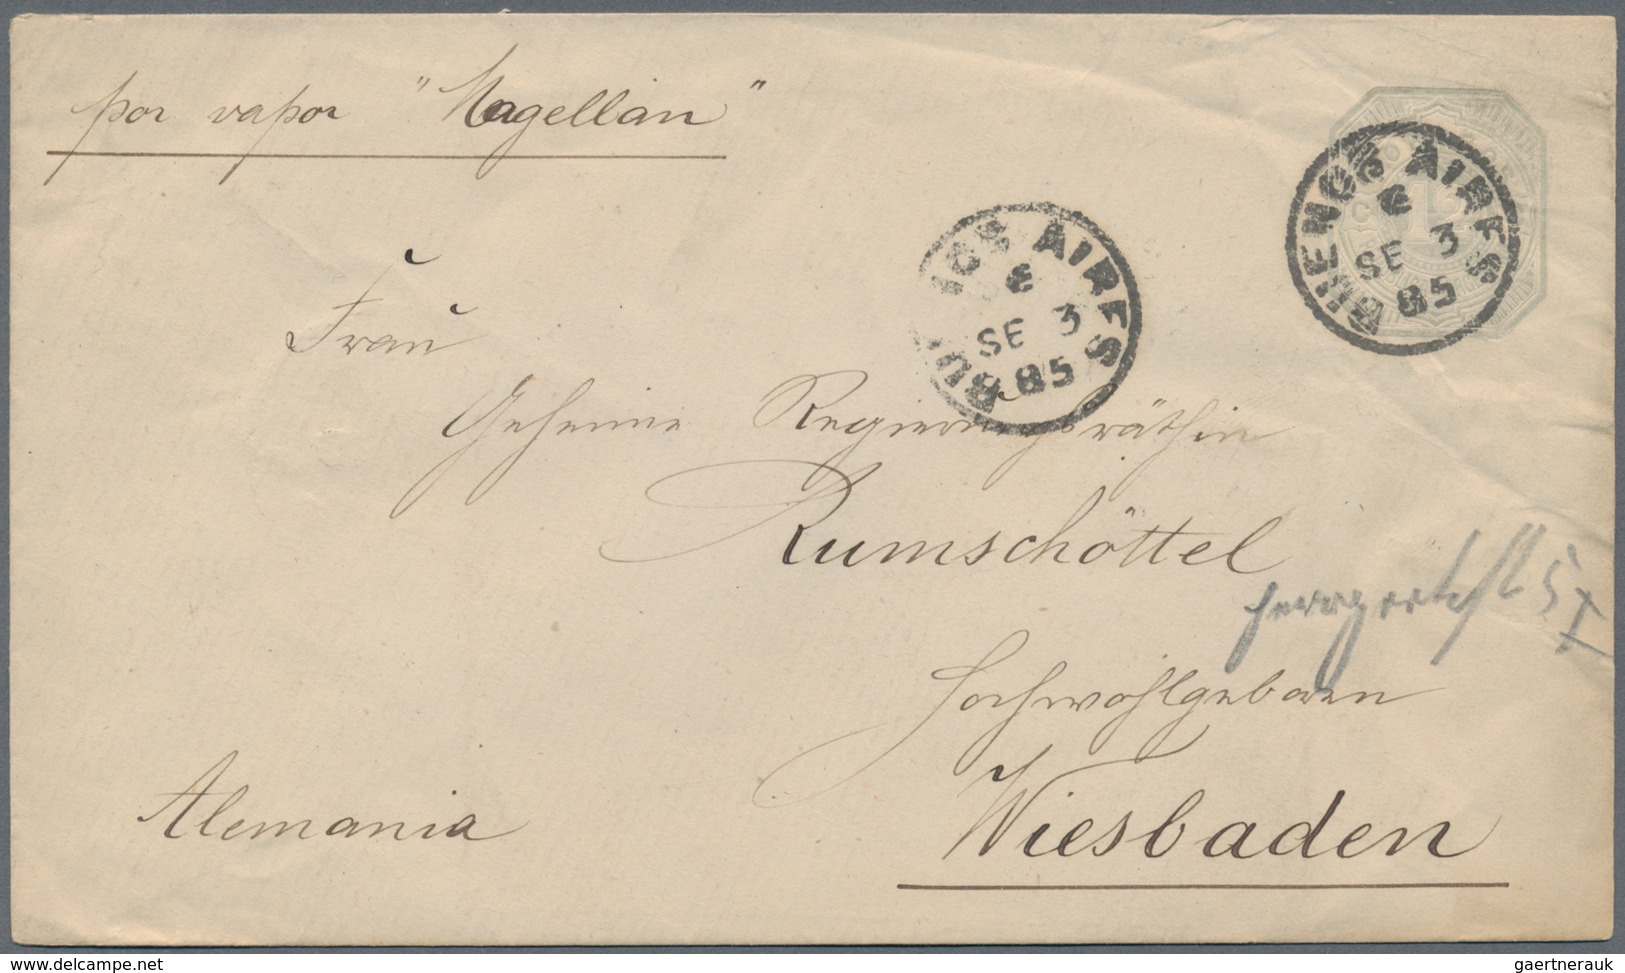 por vapor "Magellan"
BUENOS AIRES
SE 3
85
BUENOS AIRES
SE 3
85
12
Frau
Geheime Regierungsräthin
Rumschöttel
Hochwohlgeboren
Wiesbaden
Alemania
delcampe.net
gaertnerauk